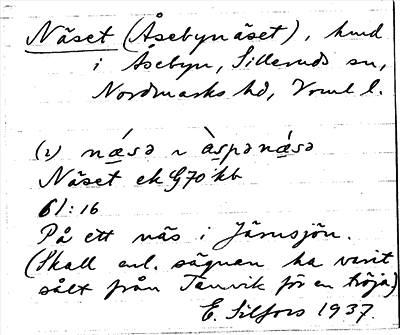 Näset (Åsebynäset), hmd
i Åsebyn, Silleruds sn,
Nordmarks hd, Vrml l.
(1) næ̀sə ~ àspənæ̀sə
Näset ek G70 kb
61:16
På ett näs i Järnsjön.
(Skall enl. sägnen ha varit
sålt från Tenvik för en tröja)
E. Silfors 1937.